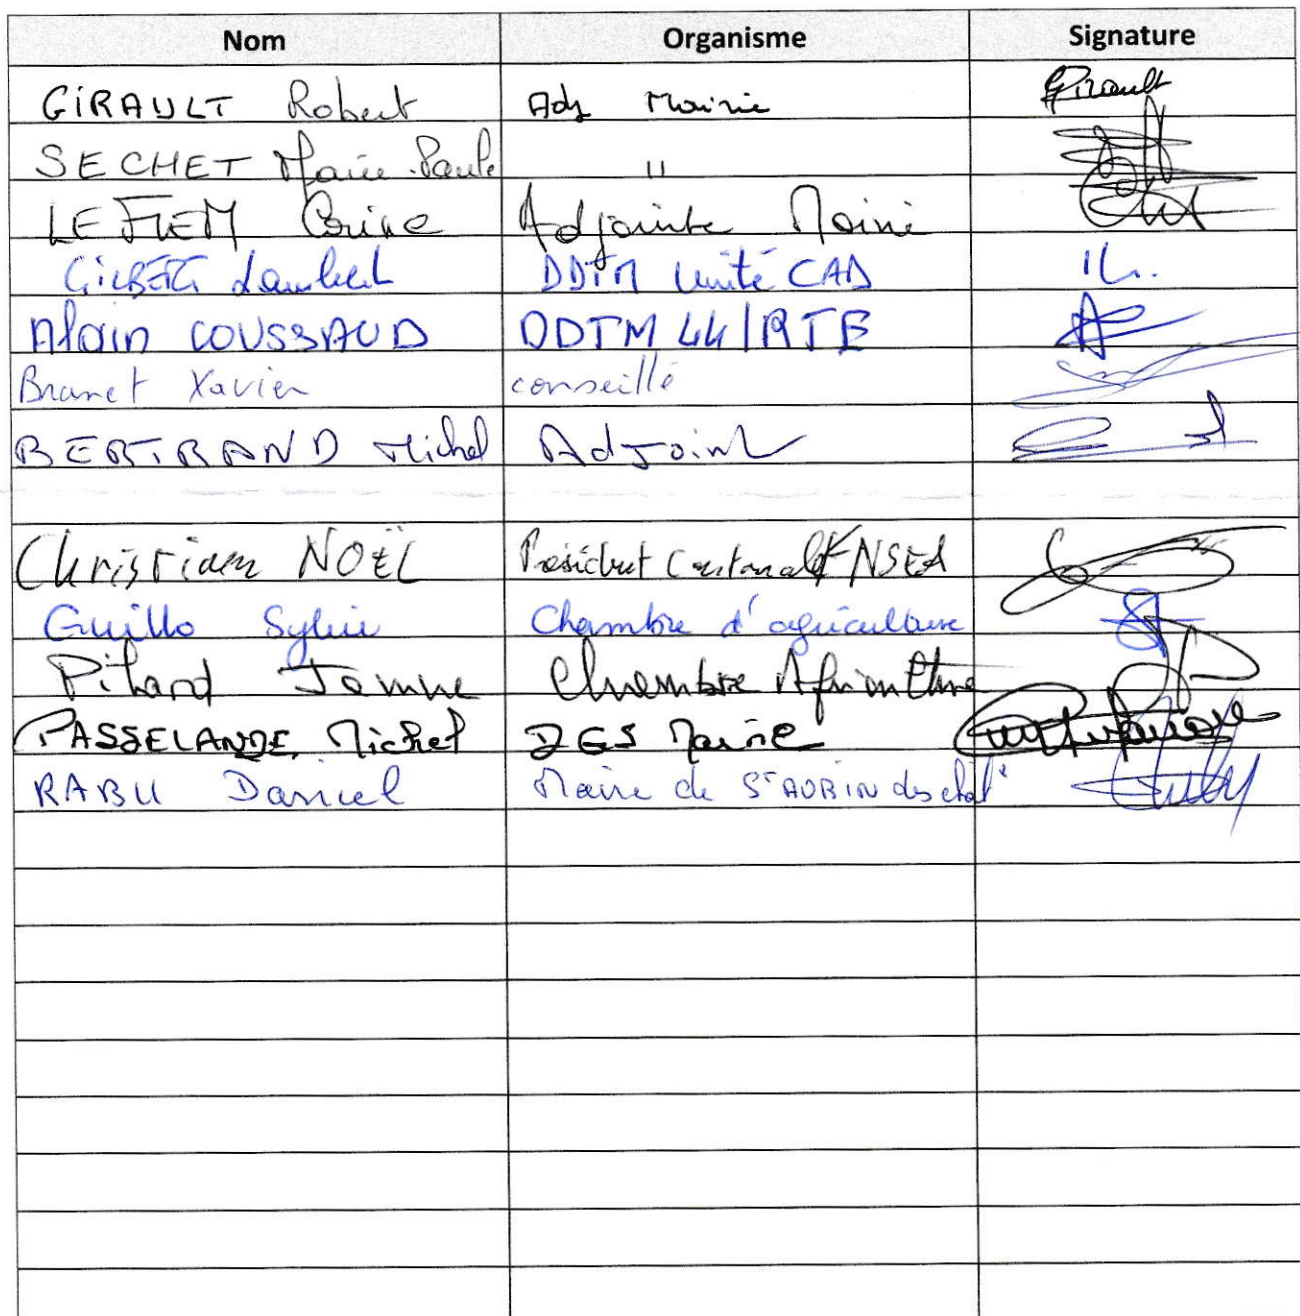 Nom Organisme Signature
GIRAULT Robert Adj Mairie Girault
SECHET Marie-Paule "
LE FLEM Corine Adjointe Mairie
GILBERT Lambert DDTM Unité CAD
Alain COUSSAUD DDTM 44 / RTE
Brunet Xavier conseillé
BERTRAND Michel Adjoint
Christian NOËL Président Cantonal FNSEA
Guillo Sylvie Chambre d'agriculture
Pihard Chambre Agriculture
PASSELANDE Michel DGS Mairie
RABU Daniel Maire de St AUBIN des chat